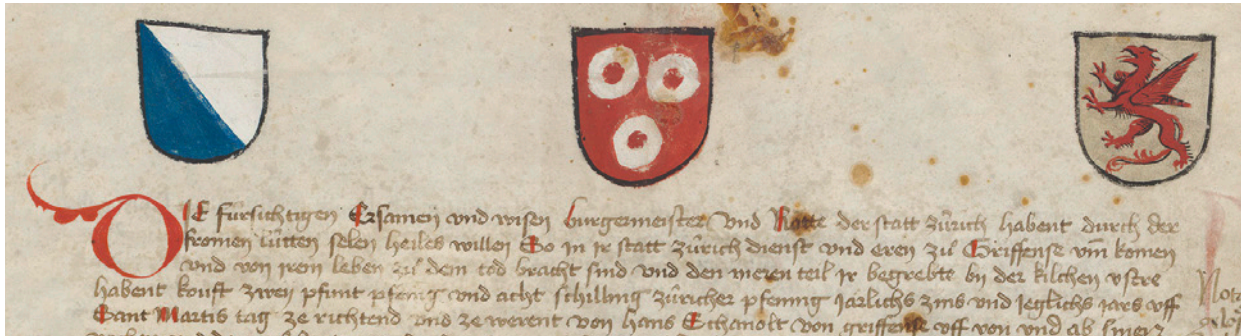 DIE fürsichtigen Ersamen vnd wisen burgermeister vnd Rötte der statt zürich habent durch der
fromen lütten selen heiles willen So in ir statt zürich dienst vnd eren zü Griffense vm̄ komen
vnd von irem leben zü dem tod bracht sind vnd den meren teil ir begrebte by der kilchen vstre
habent kouft zwen pfunt pfenig vnd acht schilling züricher pfennig järlichs zins vnd ieglichs jars vff
Sant Martis tag ze richtend vnd ze werent von hans Schanolt von griffense vff von vnd ab siner
Nota